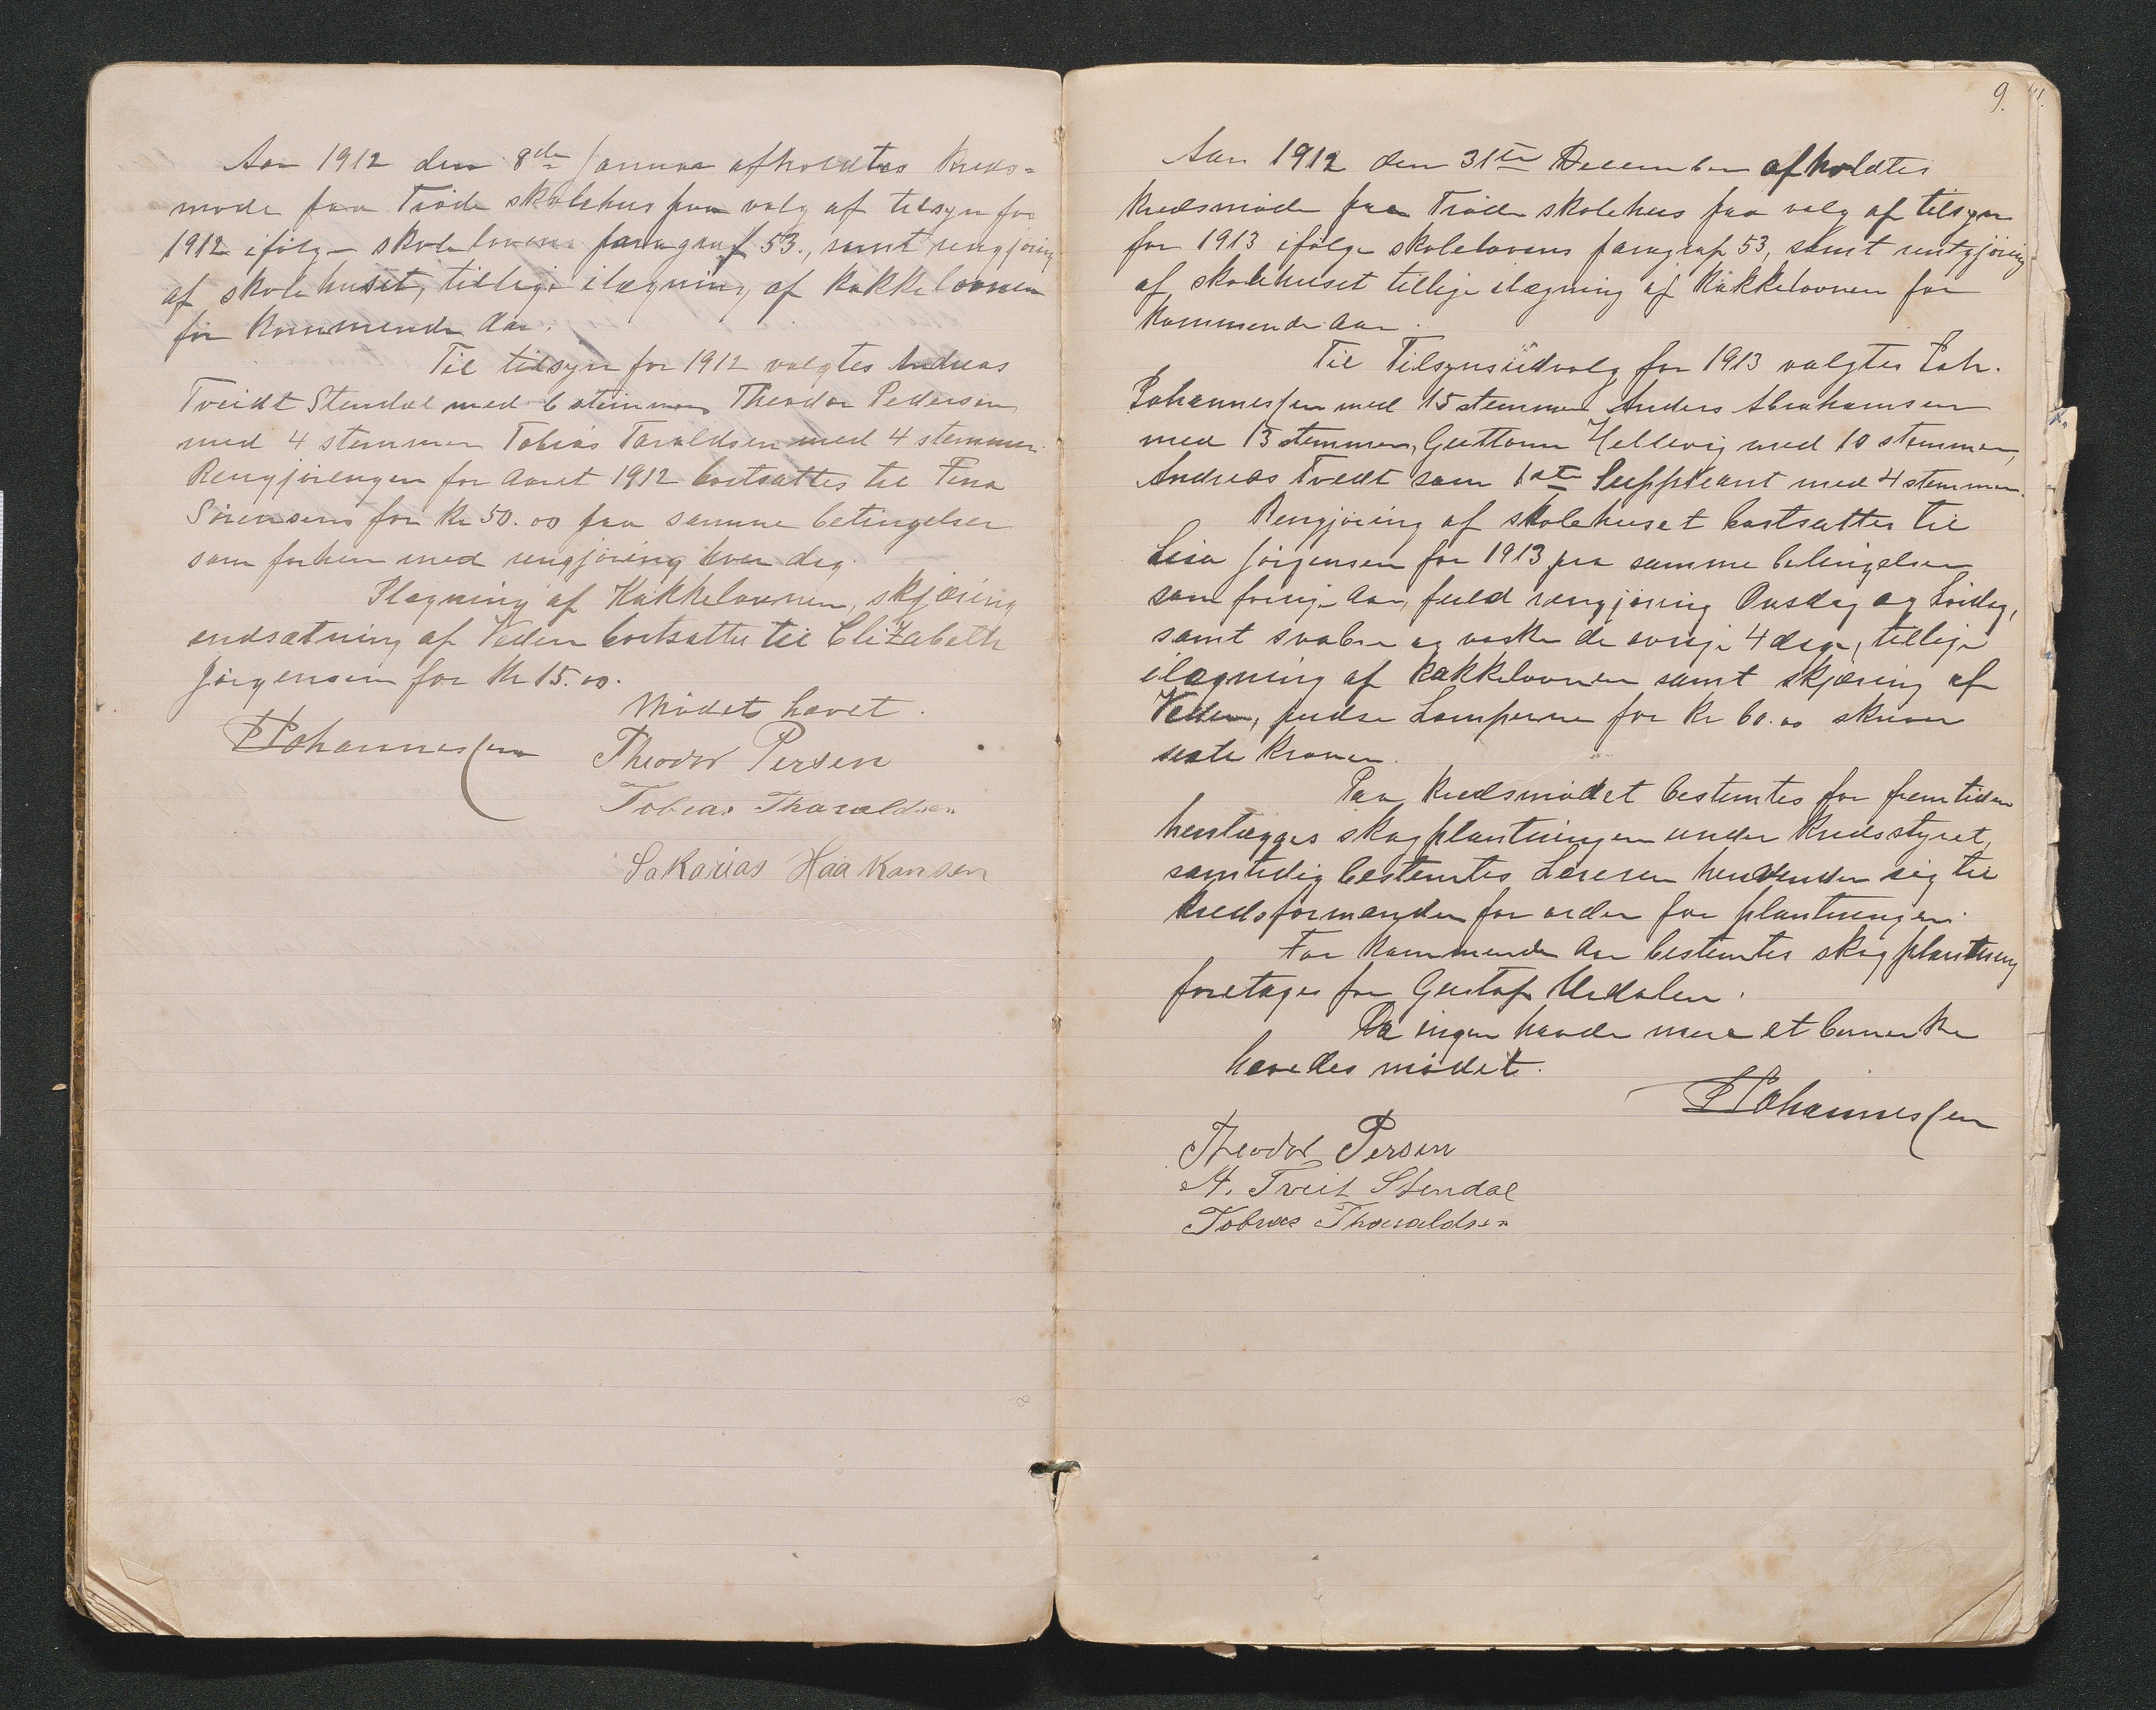 Aar 1912 den 8de Januar afholdtes Kreds-
møde paa Trøde skolehus paa valg af tilsyn for
1912 ifølge skolelovens paragraf 53., samt rengjøring
af skolehuset, tillige ilægning af kakkelovnen
for kommende Aar.
Til tilsyn for 1912 valgtes Andreas
Tveidt Stendal med 6 stemmer Theodor Pedersen
med 4 stemmer Tobias Taraldsen med 4 stemmer.
Rengjøringen for Aaret 1912 bortsattes til Tina
Sørensens for Kr 50.00 paa samme betingelser
som forhen med rengjøring hver dag.
Ilægning af Kakkelovnen, skjæring
indsætning af Veden bortsattes til Elizabeth
Jørgensen for Kr 15.00.
Mødet hævet.
Johannessen
Theodor Persen
Tobias Tharaldsen
Sakarias Haakonsen
8
9.
Aar 1912 den 31te December afholdtes
kredsmøde paa Trøde skolehus paa valg af tilsyn
for 1913 ifølge skolelovens paragraf 53, samt rentgjøring
af skolehuset tillige ilægning af Kakkelovnen for
kommende Aar.
Til Tilsynsudvalg for 1913 valgtes Joh.
Johannessen med 15 stemmer Anders Abrahamsen
med 13 stemmer, Guttorm Hellevig med 10 stemmer,
Andreas Tvedt som 1ste Suppleant med 4 stemmer.
Rengjøring af skolehuset bortsattes til
Lisa Jørgensen for 1913 paa samme betingelser
som forrige Aar, fuld rengjøring Onsdag og Lørdag,
samt svabre og vaske de øvrige 4 dage, tillige
ilægning af kakkelovnen samt skjæring af
Veden, pudse Lamperne for Kr 60.00 skriver
sexti Kroner.
Paa Kredsmødet bestemtes for fremtiden
henlægges skogplantningen under Kredsstyret,
samtidig bestemtes Læreren henvender sig til
kredsformanden for order for plantningen.
For kommende Aar bestemtes skogplantning
foretages for Gustaf Urdalen.
Da ingen havde mere at bemerke
hævedes mødet.
Johannessen
Theodor Persen
A. Tveit Stendal
Tobias Tharaldsen